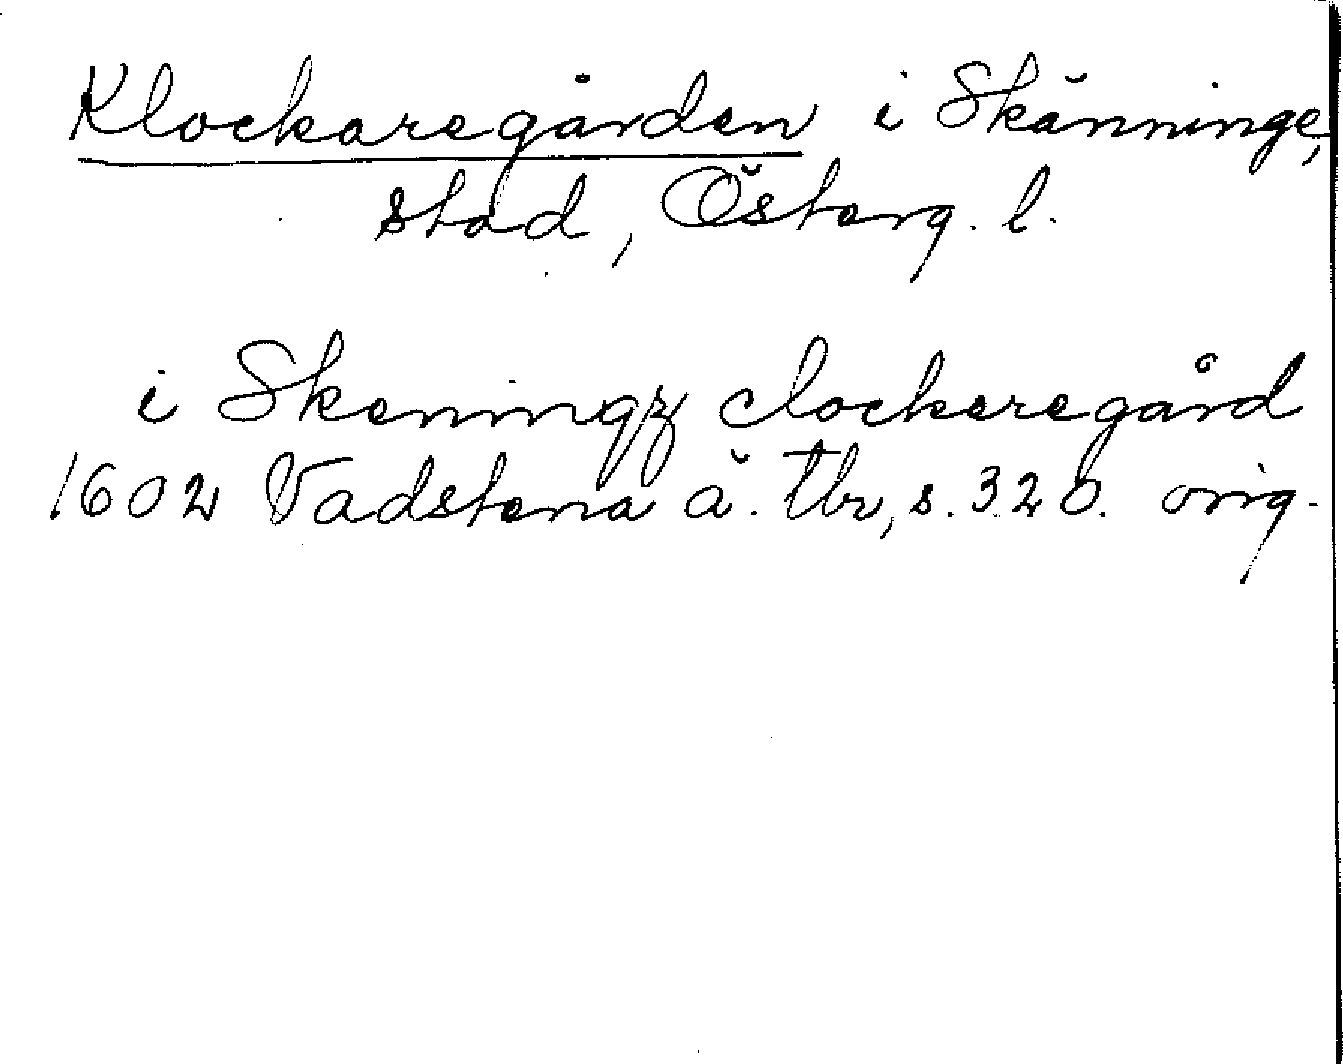 Klockaregården i Skänninge,
stad, Österg. l.
i Skeningz clockeregård
1602 Vadstena ä. tb, s. 320. orig.